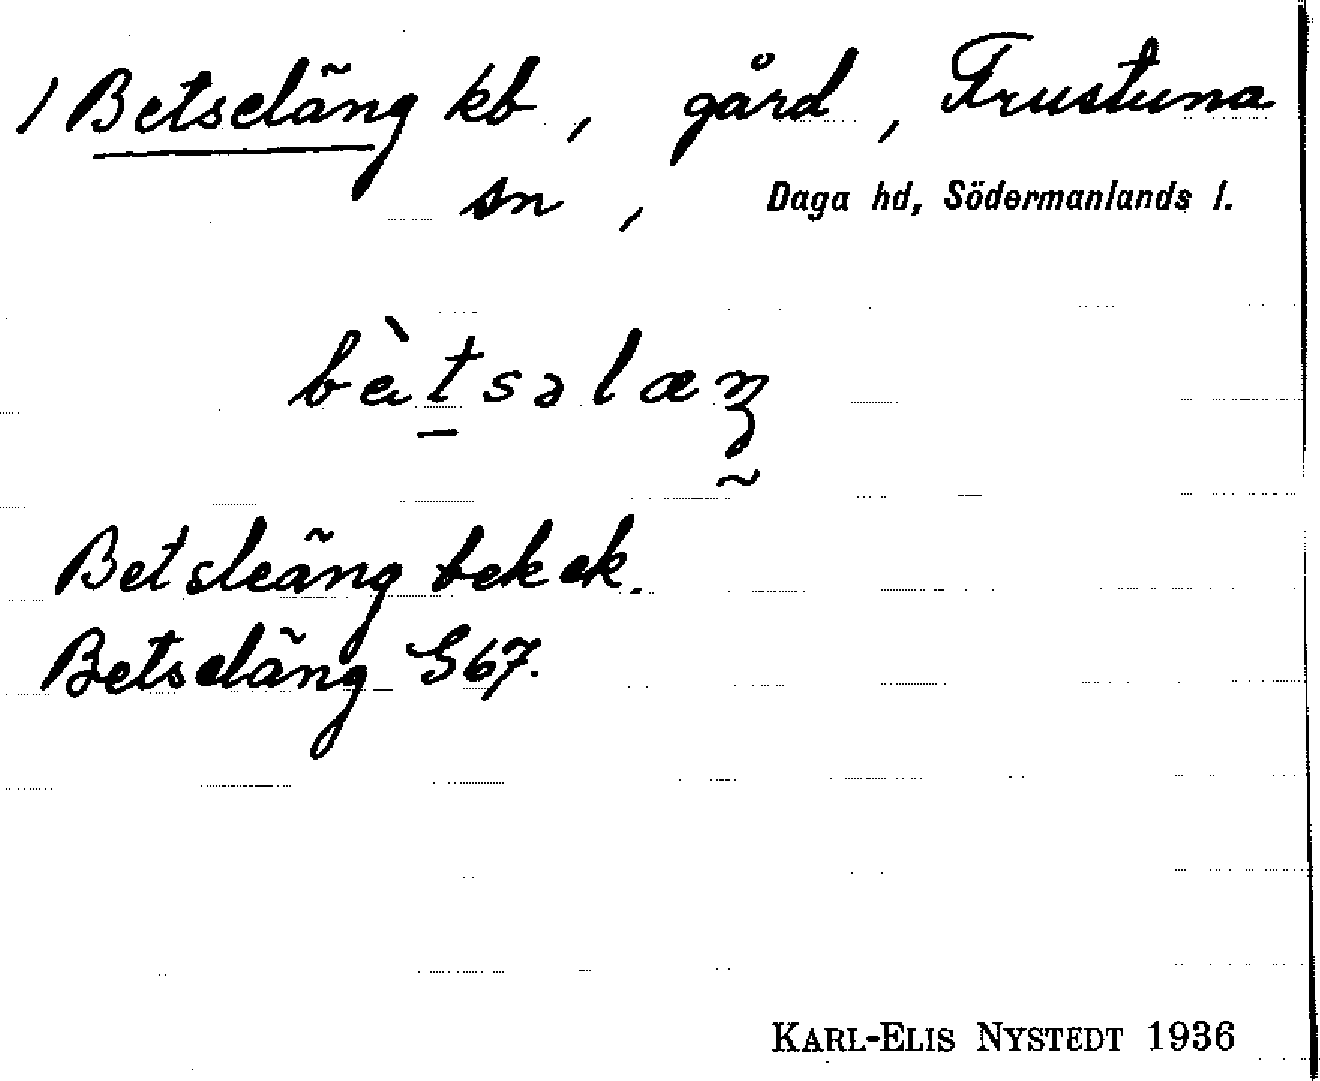 1 Betseläng kb, gård, Frustuna
sn, Daga hd, Södermanlands l.
bètsəlæŋ
Betsleäng bek ek.
Betseläng G67.
KARL-ELIS NYSTEDT 1936